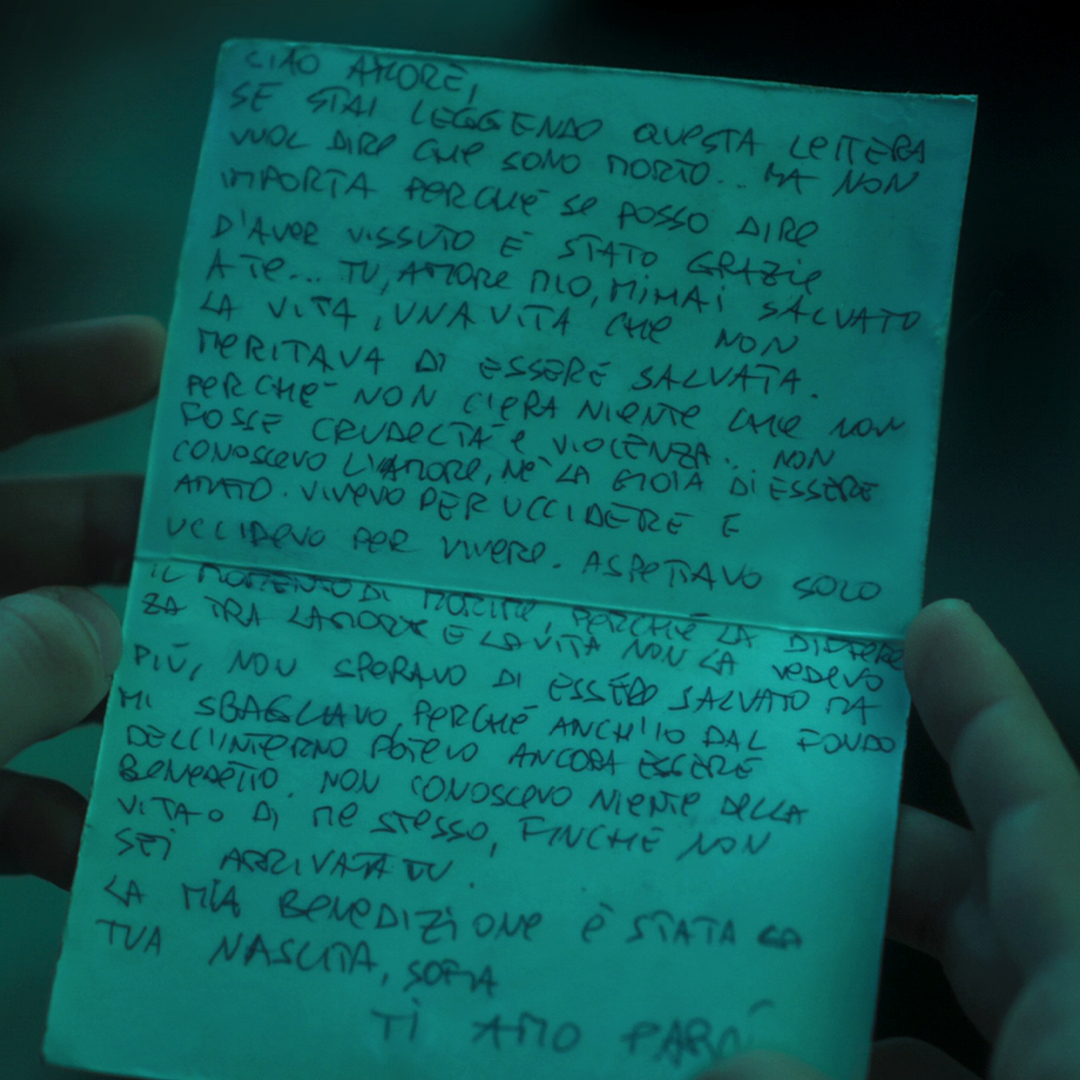 CIAO AMORE,
SE STAI LEGGENDO QUESTA LETTERA
VUOL DIRE CHE SONO MORTO... MA NON
IMPORTA PERCHÉ SE POSSO DIRE
D'AVER VISSUTO È STATO GRAZIE
A TE... TU, AMORE MIO, MI HAI SALVATO
LA VITA, UNA VITA CHE NON
MERITAVA DI ESSERE SALVATA.
PERCHÉ NON C'ERA NIENTE CHE NON
FOSSE CRUDELTÀ E VIOLENZA. NON
CONOSCEVO L'AMORE, NÉ LA GIOIA DI ESSERE
AMATO. VIVEVO PER UCCIDERE E
UCCIDEVO PER VIVERE. ASPETTAVO SOLO
IL MOMENTO DI MORIRE, PERCHÉ LA DIFFEREN
ZA TRA LA MORTE E LA VITA NON LA VEDEVO
PIÙ, NON SPERAVO DI ESSERE SALVATO MA
MI SBAGLIAVO, PERCHÉ ANCH'IO DAL FONDO
DELL'INFERNO POTEVO ANCORA ESSERE
BENEDETTO. NON CONOSCEVO NIENTE DELLA
VITA O DI ME STESSO, FINCHÉ NON
SEI ARRIVATA TU.
LA MIA BENEDIZIONE È STATA LA
TUA NASCITA, SOFIA
TI AMO PAPÀ